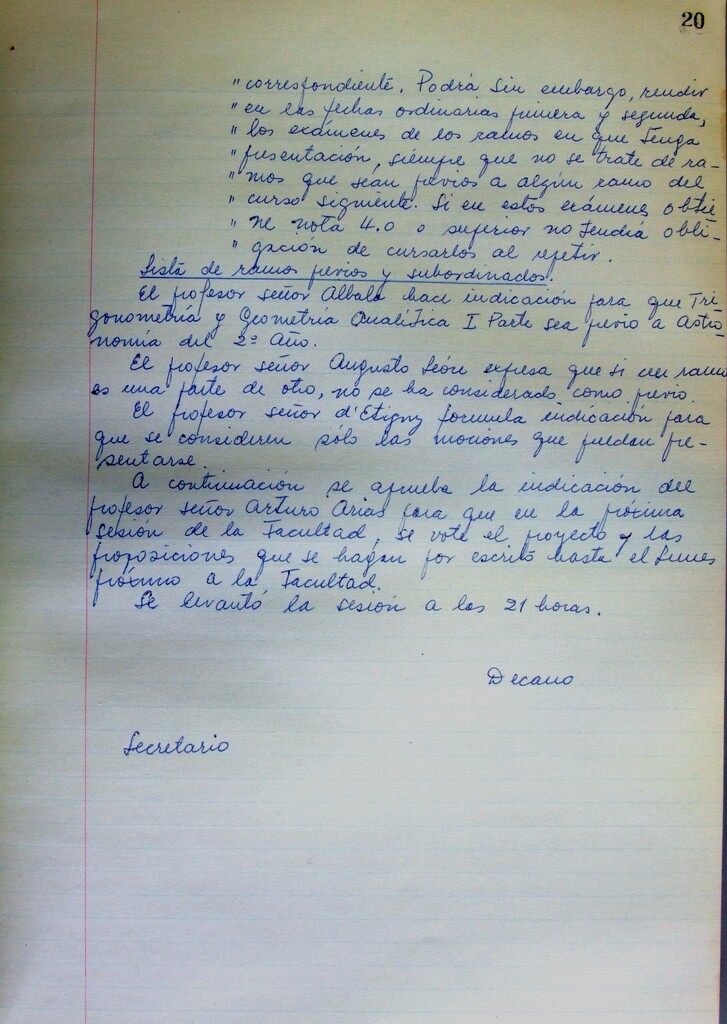 20
" correspondiente. Podrá sin embargo, rendir
" en las fechas ordinarias primera y segunda,
" los exámenes de los ramos en que tenga
" presentación, siempre que no se trate de ra-
" mos que sean previos a algún ramo del
" curso siguiente. Si en estos exámenes obtie
" ne nota 4.0 o superior no tendrá obli-
" gación de cursarlos al repetir.
Lista de ramos previos y subordinados.
El profesor señor Albala hace indicación para que Tri
gonometría y Geometría Analítica I Parte sea previo a Astro
nomía del 2º Año.
El profesor señor Augusto León expresa que si un ramo
es una parte de otro, no se ha considerado como previo.
El profesor señor d'Etigny formula indicación para
que se consideren sólo las mociones que puedan pre-
sentarse.
A continuación se aprueba la indicación del
profesor señor Arturo Arias para que en la próxima
sesión de la Facultad, se vote el proyecto y las
proposiciones que se hagan por escrito hasta el Lunes
próximo a la Facultad.
Se levantó la sesión a las 21 horas.
Decano
Secretario